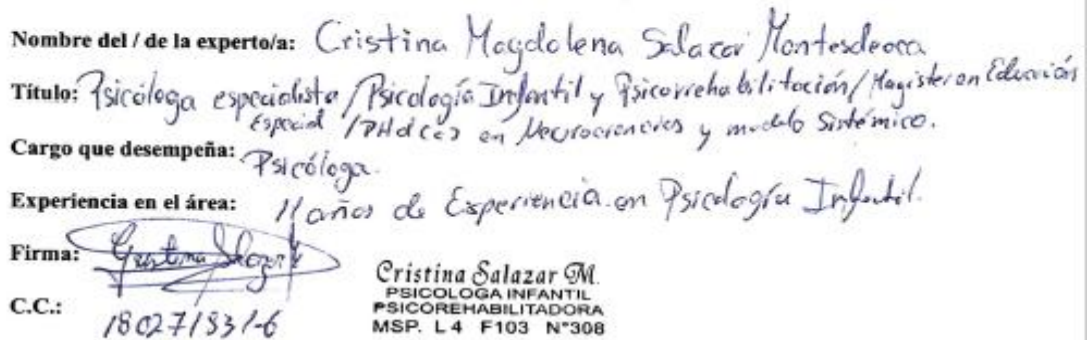 Nombre del / de la experto/a: Cristina Magdalena Salazar Montesdeoca
Título: Psicóloga especialista / Psicología Infantil y Psicorrehabilitación / Magister en Educación
Especial / PHd en Neurociencias y modelo Sistémico.
Cargo que desempeña: Psicóloga.
Experiencia en el área: 11 años de Experiencia en Psicología Infantil.
Firma: Cristina Salazar
Cristina Salazar M.
PSICOLOGA INFANTIL
PSICOREHABILITADORA
MSP. L 4 F103 N°308
C.C.: